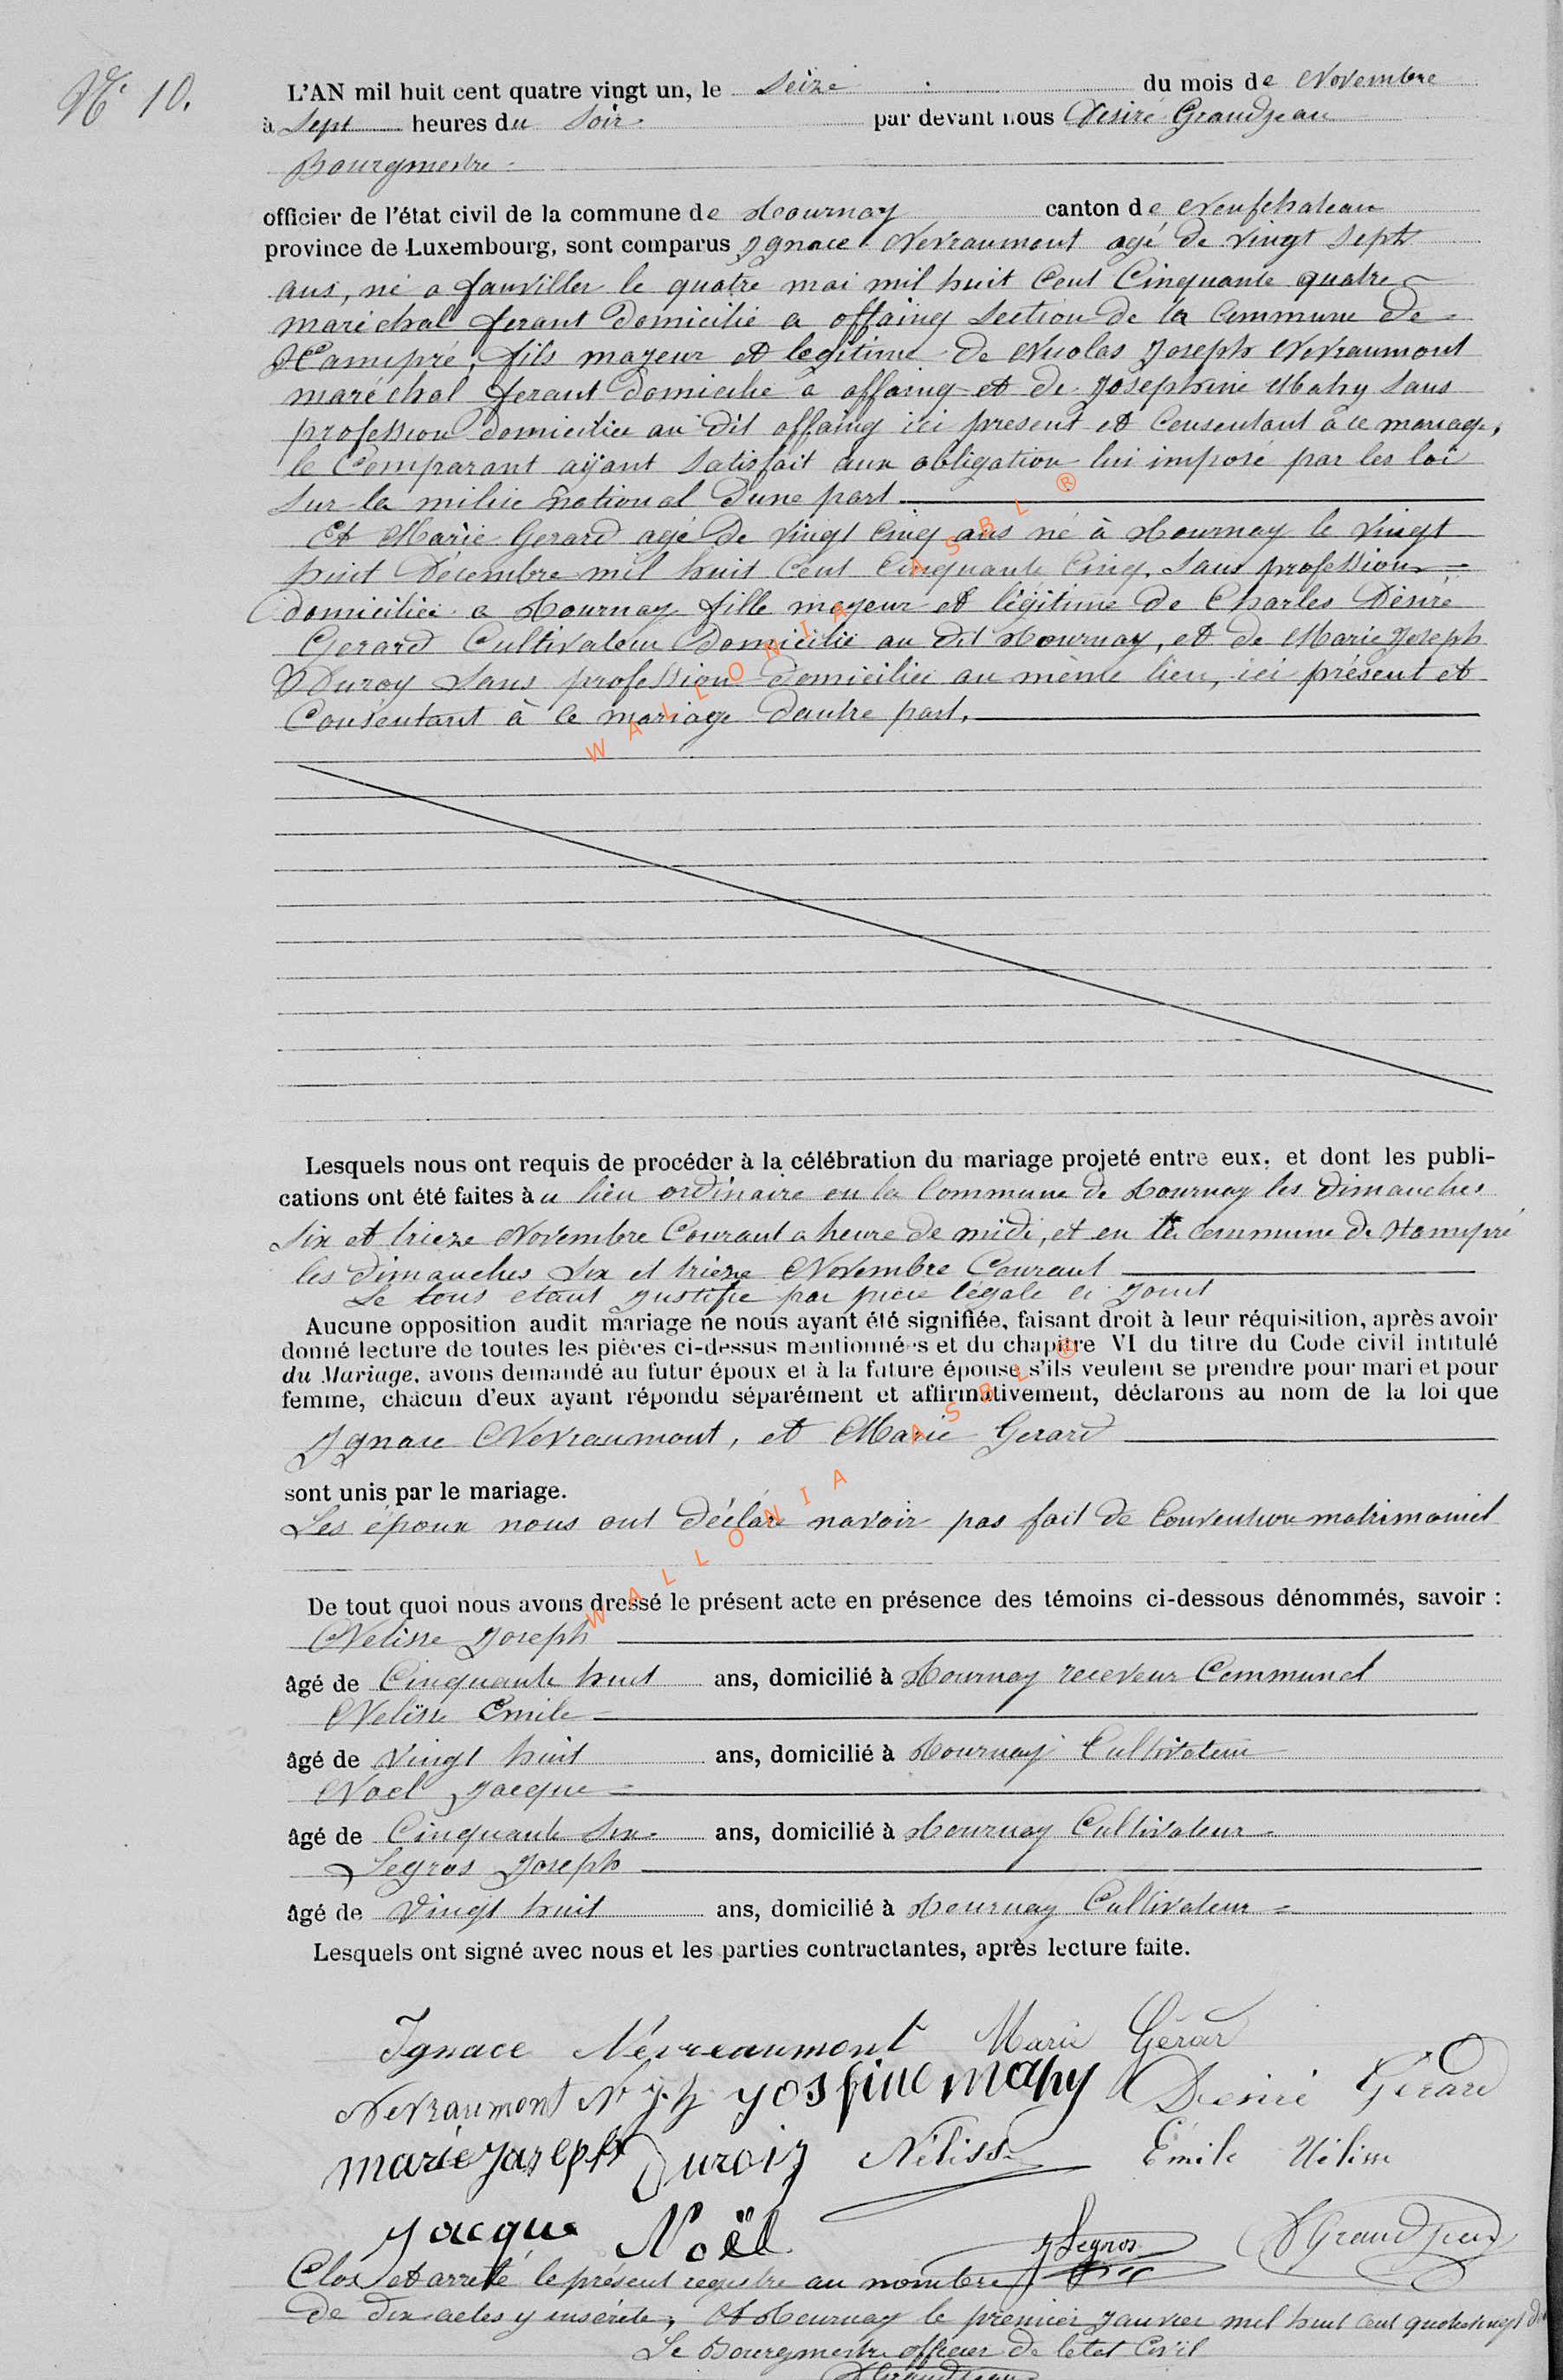 N° 10.
L'AN mil huit cent quatre vingt un, le Seize du mois de Novembre
à Sept heures du Soir par devant nous Desiré Grandjean
Bourgmestre
officier de l'état civil de la commune de Tournay canton de Neufchateau
province de Luxembourg, sont comparus Ygnace Nevraumont agé de vingt Sept
ans, né a fauviller le quatre mai mil huit Cent Cinquante quatre
maréchal ferant domicilié a offaing Section de la Commune de
Hamipré, fils mayeur et legitime de Nicolas Joseph Nevraumont
maréchal ferant domicilié a offaing et de Joséphine Mahy Sans
profession domiciliée au dit offaing ici present et Consentant à ce mariage,
le Comparant aÿant Satisfait aux obligation lui imposé par les loi
Sur la milice national d'une part
Et Marie Gerard agé de vingt Cinq ans né à Tournay le vingt
huit Décembre mil huit Cent Cinquante Cinq, Sans profession
domiciliée a Tournay fille mayeur et légitime de Charles Désiré
Gerard Cultivateur Domicilié au dit Tournay, et de Marie Joseph
Duroy Sans profession domiciliée au même lieu, ici présent et
Consentant à ce mariage d'autre part.
WALLONIA ASBL ®
Lesquels nous ont requis de procéder à la célébration du mariage projeté entre eux, et dont les publi-
cations ont été faites au lieu ordinaire en la Commune de Tournay les dimanches
Six et trieze Novembre Courant a heure de midi, et en la Commune de Hamipré
les dimanches Six et trieze Novembre Courant
Le tous étant justifié par piece légale ci joint
Aucune opposition audit mariage ne nous ayant été signifiée, faisant droit à leur réquisition, après avoir
donné lecture de toutes les pièces ci-dessus mentionnées et du chapitre VI du titre du Code civil intitulé
du Mariage, avons demandé au futur époux et à la future épouse s'ils veulent se prendre pour mari et pour
femme, chacun d'eux ayant répondu séparément et affirmativement, déclarons au nom de la loi que
Ygnace Nevraumont, et Marie Gerard
sont unis par le mariage.
Les époux nous ont déclaré navoir pas fait de Convention matrimoniel
WALLONIA ASBL ®
De tout quoi nous avons dressé le présent acte en présence des témoins ci-dessous dénommés, savoir :
Nelisse Joseph
âgé de Cinquante huit ans, domicilié à Tournay receveur Communal
Nelisse Emile
âgé de Vingt huit ans, domicilié à Tournay Cultivateur
Noel Jacque
âgé de Cinquante Six ans, domicilié à Tournay Cultivateur
Legros Joseph
âgé de Vingt huit ans, domicilié à Tournay Cultivateur
Lesquels ont signé avec nous et les parties contractantes, après lecture faite.
Ignace Névreaumont Marie Gérar
Nevraumont N J h yosfine mahy Desiré Gérard
marie Joseph Duroiy Néliss Emile Nélisse
Jacque Noël J Legros D Grandjean
Clos et arreté le présent registre au nombre
de dix actes y inséreté, A Tournay le premier Janvier mil huit cent quatrevingt deux
Le Bourgmestre officier de létat Civil
D Grandjean